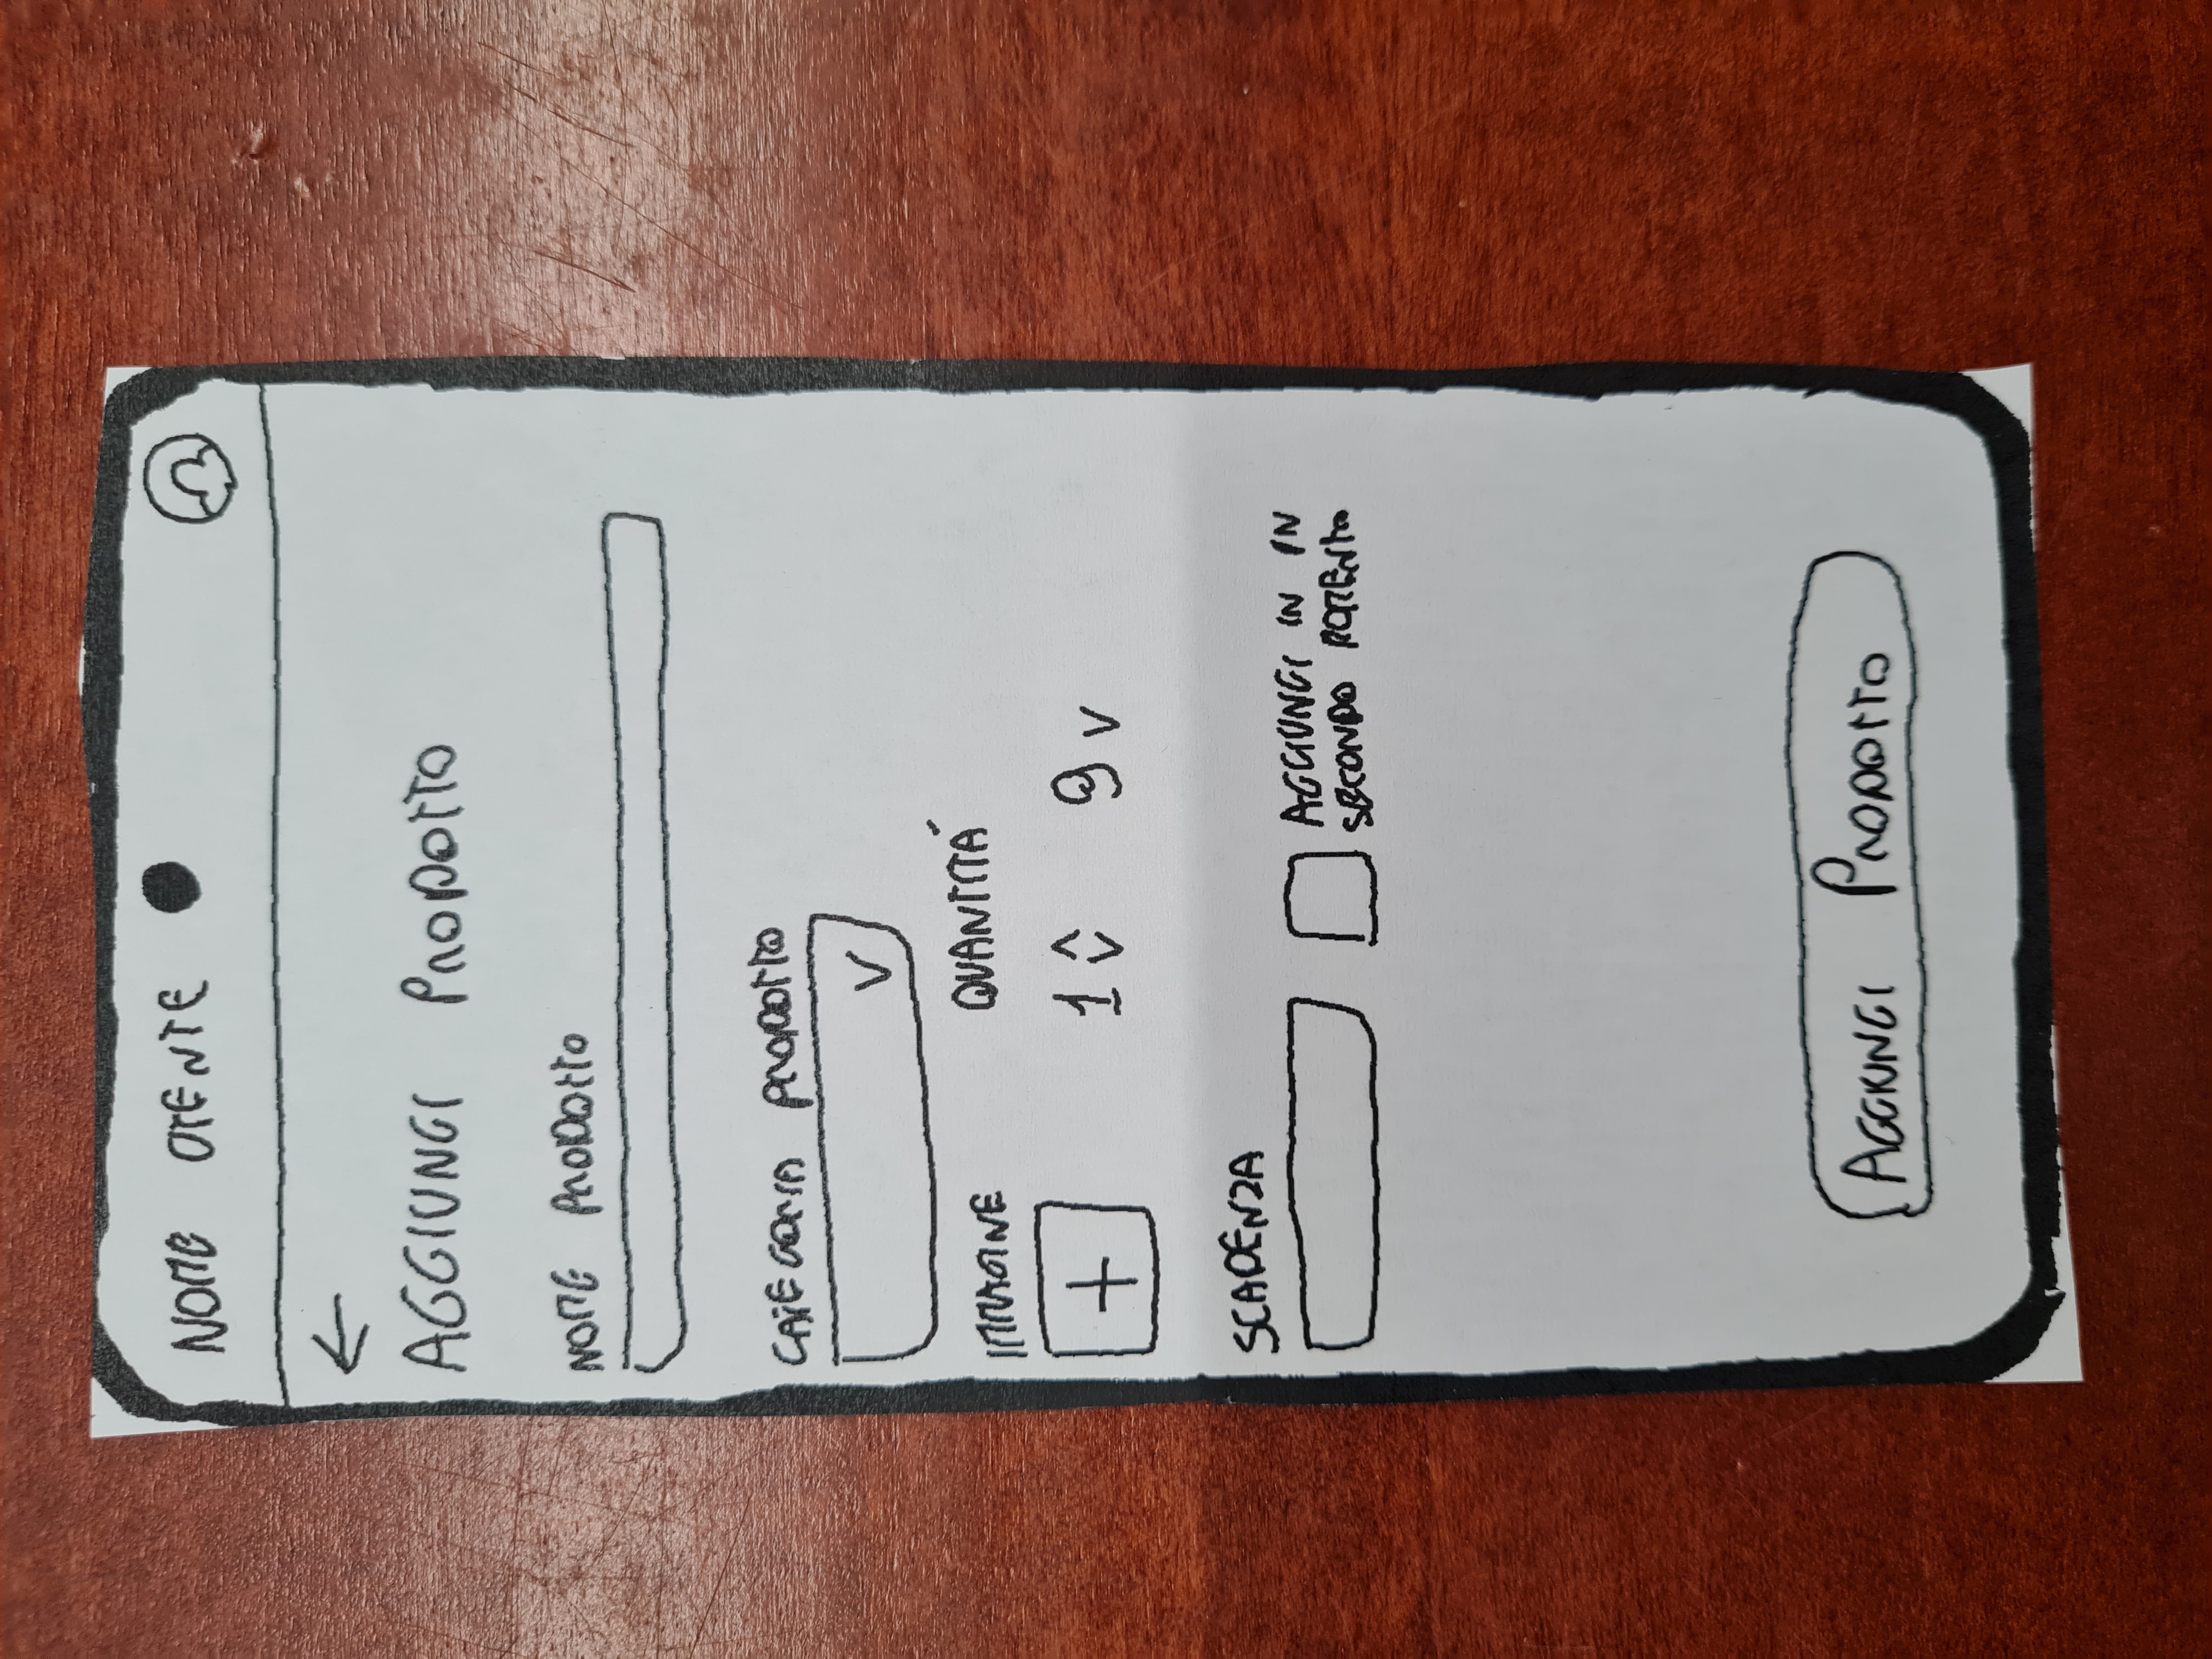 NOME UTENTE
AGGIUNGI PRODOTTO
NOME PRODOTTO
CATEGORIA PRODOTTO
V
IMMAGINE QUANTITÁ
+ 1 9 V
SCADENZA
AGGIUNGI IN IN
SECONDO MOMENTO
AGGIUNGI PRODOTTO